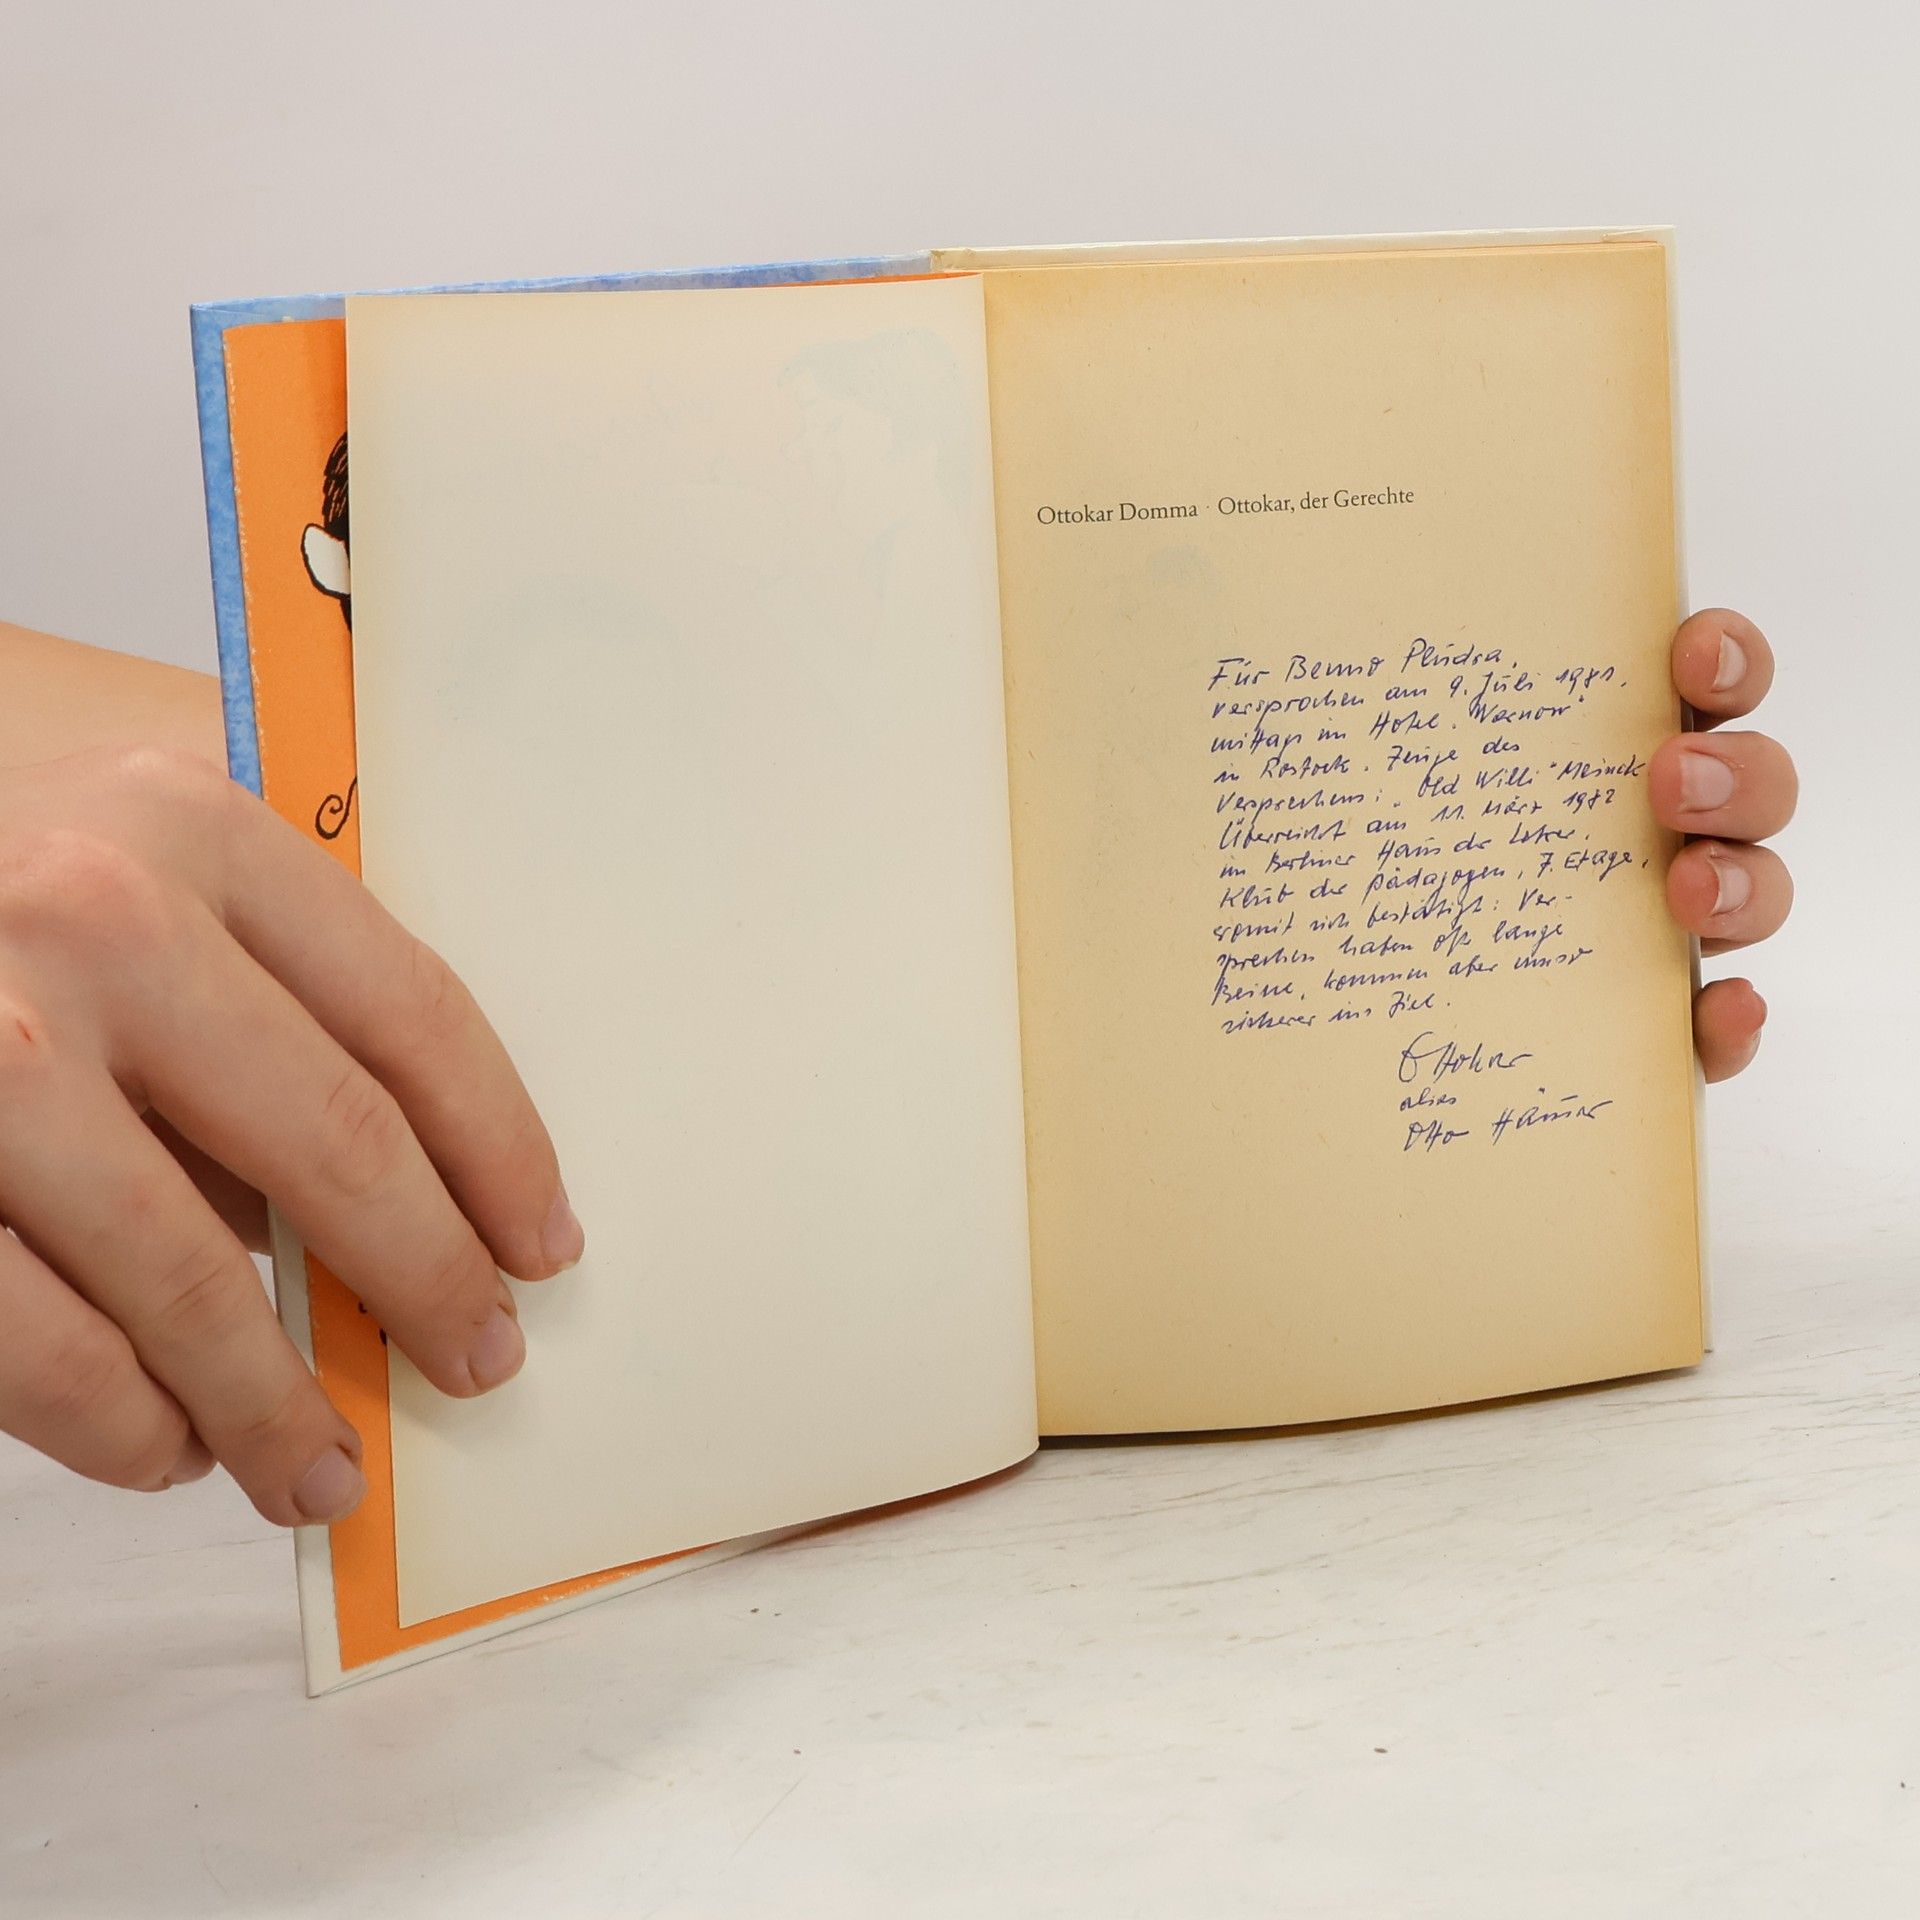 Ottokar Domma · Ottokar, der Gerechte
Für Benno Pludra,
versprochen am 9. Juli 1981,
mittags im Hotel „Warnow“
in Rostock. Zeuge des
Versprechens: „Old Willi“ Meinck
Überreicht am 11. März 1982
im Berliner Haus der Lehrer,
Klub der Pädagogen, 7. Etage,
womit sich bestätigt: Ver-
sprechen haben oft lange
Beine, kommen aber umso
sicherer ins Ziel.
Ottokar
alias
Otto Häuser